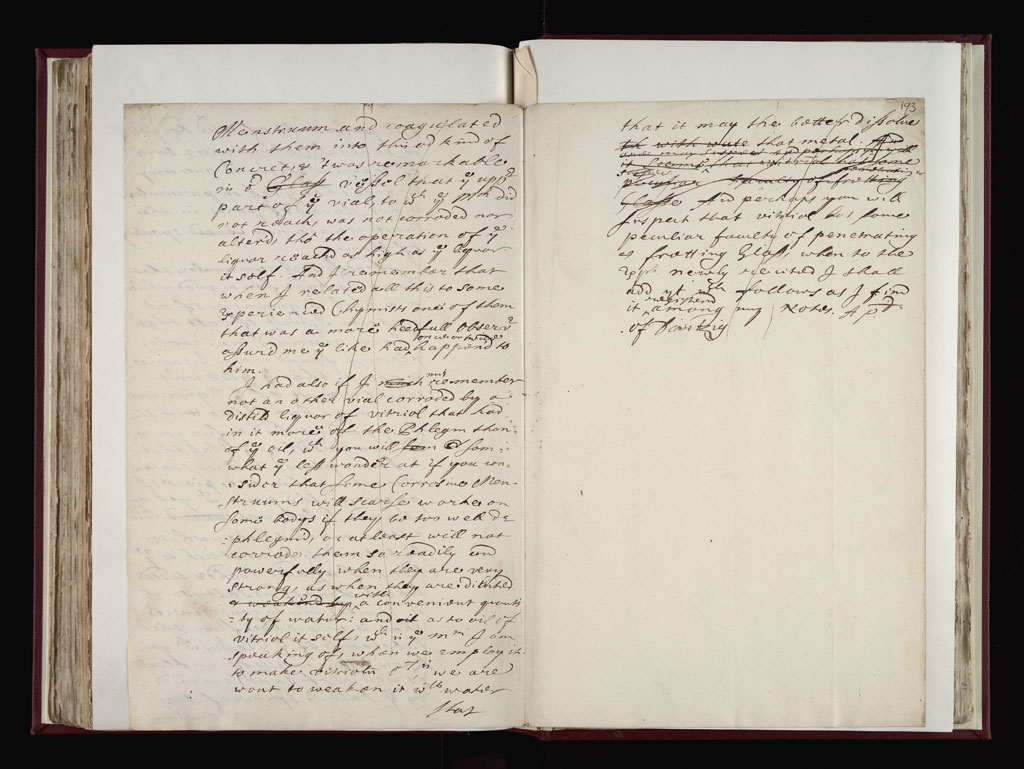 Menstruum and coagulated
with them into this od kind of
Concret, & 't was remarkable
in ye Glass vessel that ye uppr
part of ye vial, to wch ye Mm did
not reach, was not corroded nor
alterd, tho the operation of ye
liquor reachd as high as ye liquor
it self. And I remember that
when I related all this to some
experienc'd Chymists one of them
that was a more heedfull Observr
assurd me ye like had once or twice happend to
him.
I had also if I much mis remember
not an other vial corroded by a
distild liquor of vitriol that had
in it more of the Phlegm than
of ye oil, wch you will som:
what ye less wonder at if you con,
:sider that some Corrosive Men-
struums will scarse worke on
some bodys if they be too well de
:phlegmd, or at least will not
corrode them so readily and
powerfully when they are very
strong, as when they are diluted
& weakend by with a convenient quanti
:ty of water: and oil as to oil of
vitriol it self, wch is ye Mm I am
speaking of, when we imploy it
to make vitriolū we are
wont to weaken it wth water
that
193
that it may the better dissolve
with wate that metal. And
it seems that vitriol has some
peculiar faculty of fretting
penetrating
Glasse And perhaps you will
suspect that vitriol has some
peculiar faculty of penetrating
or fretting Glass, when to the
Expt. newly recited I shall
add yt wch follows as I find
it registerd among my Notes. A pd
of Dantzig